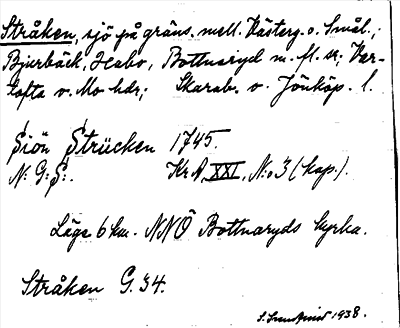 Stråken, sjö på gräns. mell. Västerg. o. Smål.;
Bjurbäck, Habo, Bottnaryd m. fl. sn; Var-
tofta o. Mo hdr; Skarab. o. Jönköp. l.
Siön Strücken 1745.
N: G: S:. KrA, XXI, N:o 3 (kop.).
Läge 6 km. NNÖ Bottnaryds kyrka.
Stråken G. 34.
1938.